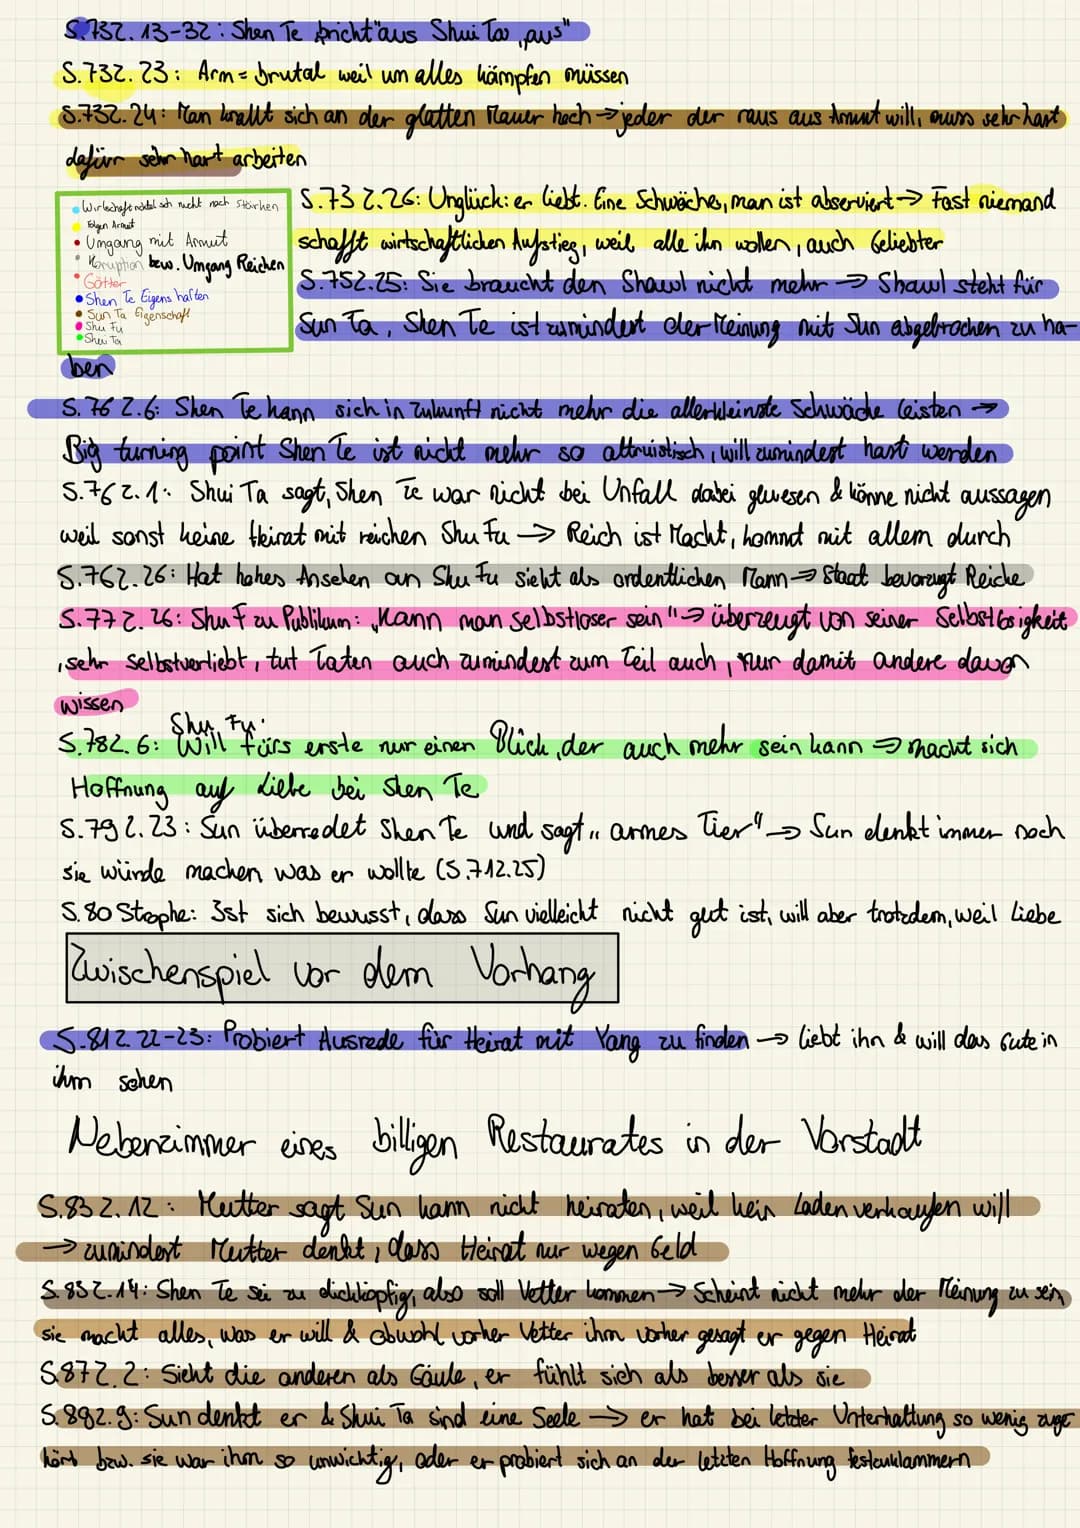 S.73Z.13-32: Shen Te bricht "aus Shui Ta „aus"
S.73Z.23: Arm = brutal weil um alles kämpfen müssen
S.73Z.24: Man krallt sich an der glatten Mauer hoch → jeder der raus aus Armut will, muss sehr hart
dafür sehr hart arbeiten
Wirtschaft richtet sich nicht nach Stärken
Folgen Armut
Umgang mit Armut
Korruption bzw. Umgang Reichen
Götter
Shen Te Eigenschaften
Sun Ta Eigenschaft
Shu Fu
Shui Ta
S.73Z.26: Unglück: er liebt. Eine Schwäche, man ist abserviert → Fast niemand
schafft wirtschaftlichen Aufstieg, weil alle ihn wollen, auch Geliebter
S.75Z.25: Sie braucht den Shawl nicht mehr → Shawl steht für
Sun Ta, Shen Te ist zumindest der Meinung mit Sun abgebrochen zu ha-
ben
S.76 Z.6: Shen Te kann sich in Zukunft nicht mehr die allerkleinste Schwäche leisten →
Big turning point Shen Te ist nicht mehr so altruistisch, will zumindest hart werden
S.76Z.1: Shui Ta sagt, Shen Te war nicht bei Unfall dabei gewesen & könne nicht aussagen
weil sonst keine Heirat mit reichen Shu Fu → Reich ist Macht, kommt mit allem durch
S.76Z.26: Hat hohes Ansehen an Shu Fu sieht als ordentlichen Mann → Staat bevorzugt Reiche
S.77Z.26: Shu F zu Publikum: „Kann man selbstloser sein" → überzeugt von seiner Selbstlosigkeit
, sehr selbstverliebt, tut Taten auch zumindest zum Teil auch, nur damit andere davon
wissen
Shu Fu:
S.78Z.6: Will fürs erste nur einen Blick, der auch mehr sein kann → macht sich
Hoffnung auf Liebe bei Shen Te
S.79Z.23: Sun überredet Shen Te und sagt „armes Tier" → Sun denkt immer noch
sie würde machen was er wollte (S.71Z.25)
S.80 Strophe: Ist sich bewusst, dass Sun vielleicht nicht gut ist, will aber trotzdem, weil Liebe
Zwischenspiel vor dem Vorhang
S.81Z.22-23: Probiert Ausrede für Heirat mit Yang zu finden → liebt ihn & will das Gute in
ihm sehen
Nebenzimmer eines billigen Restaurates in der Vorstadt
S.83Z.12: Mutter sagt Sun kann nicht heiraten, weil kein Laden verkaufen will
→ zumindest Mutter denkt, dass Heirat nur wegen Geld
S.85Z.14: Shen Te sei zu dickköpfig, also soll Vetter kommen → Scheint nicht mehr der Meinung zu sein,
sie macht alles, was er will & obwohl vorher Vetter ihm vorher gesagt er gegen Heirat
S.87Z.2: Sieht die anderen als Gäule, er fühlt sich als besser als sie
S.88Z.9: Sun denkt er & Shui Ta sind eine Seele → er hat bei letzter Unterhaltung so wenig zuge
hört bzw. sie war ihm so unwichtig, oder er probiert sich an der letzten Hoffnung festzuklammern